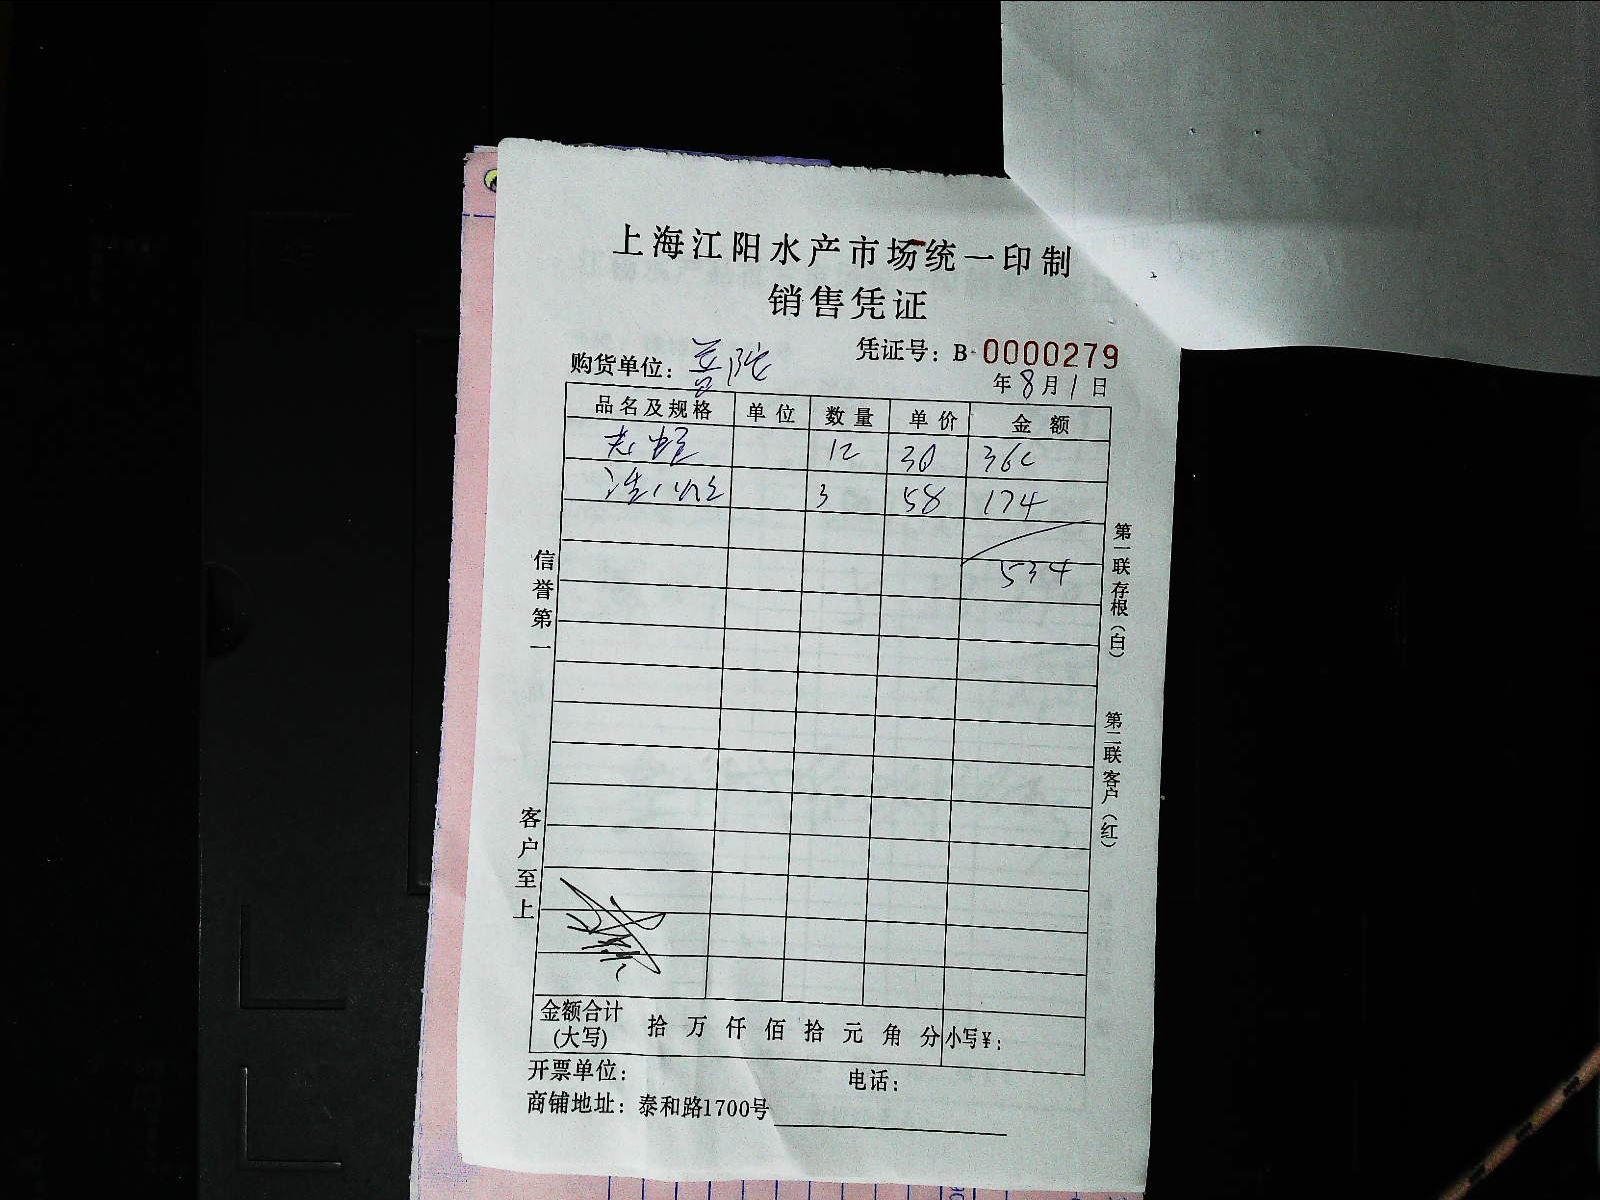 上海江阳水产市场统一印制
销售凭证
凭证号：B 0000279
购货单位：普陀
年8月1日
品名及规格 单位 数量 单价 金额
12 30 360
3 58 174
534
信誉第一
客户至上
第一联存根（白）
第二联客户（红）
金额合计（大写） 拾 万 仟 佰 拾 元 角 分 小写¥：
开票单位： 电话：
商铺地址：泰和路1700号